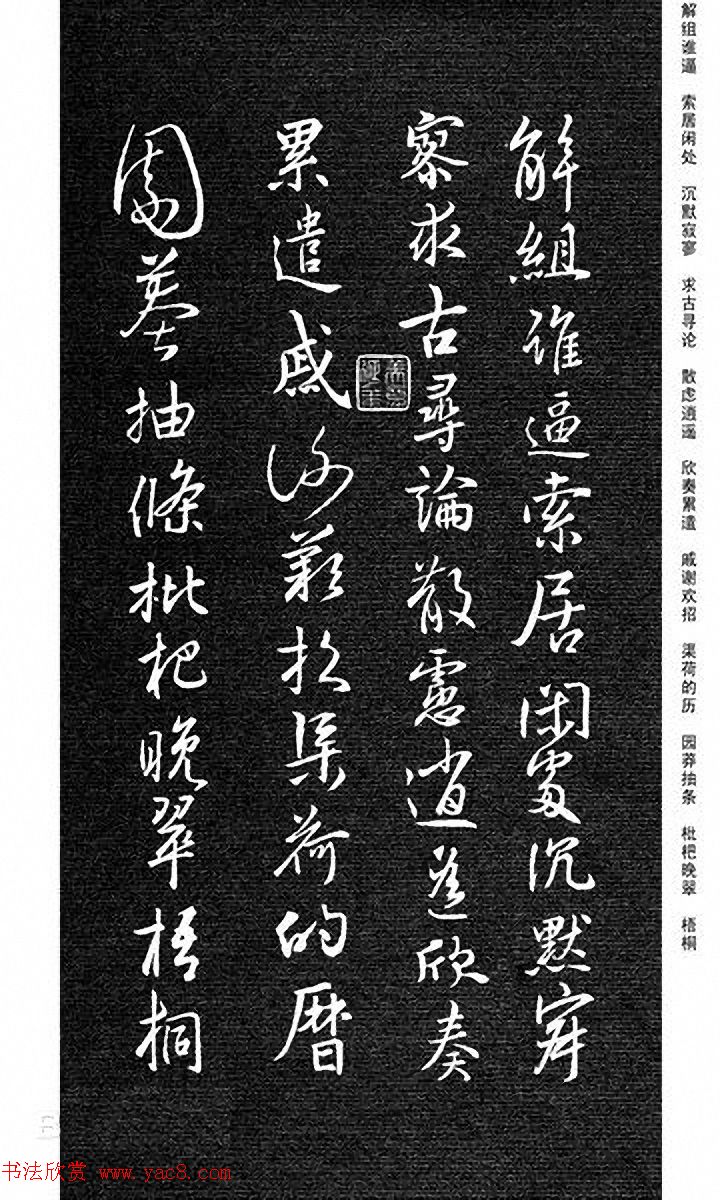 解组谁逼 索居闲处 沉默寂寥 求古寻论 散虑逍遥 欣奏累遣 戚谢欢招 渠荷的历 园莽抽条 枇杷晚翠 梧桐
解組誰逼索居閑處沉默寂
寥求古尋論散慮逍遙欣奏
累遣慼謝歡招渠荷的曆
園莽抽條枇杷晚翠梧桐
书法欣赏 www.yac8.com